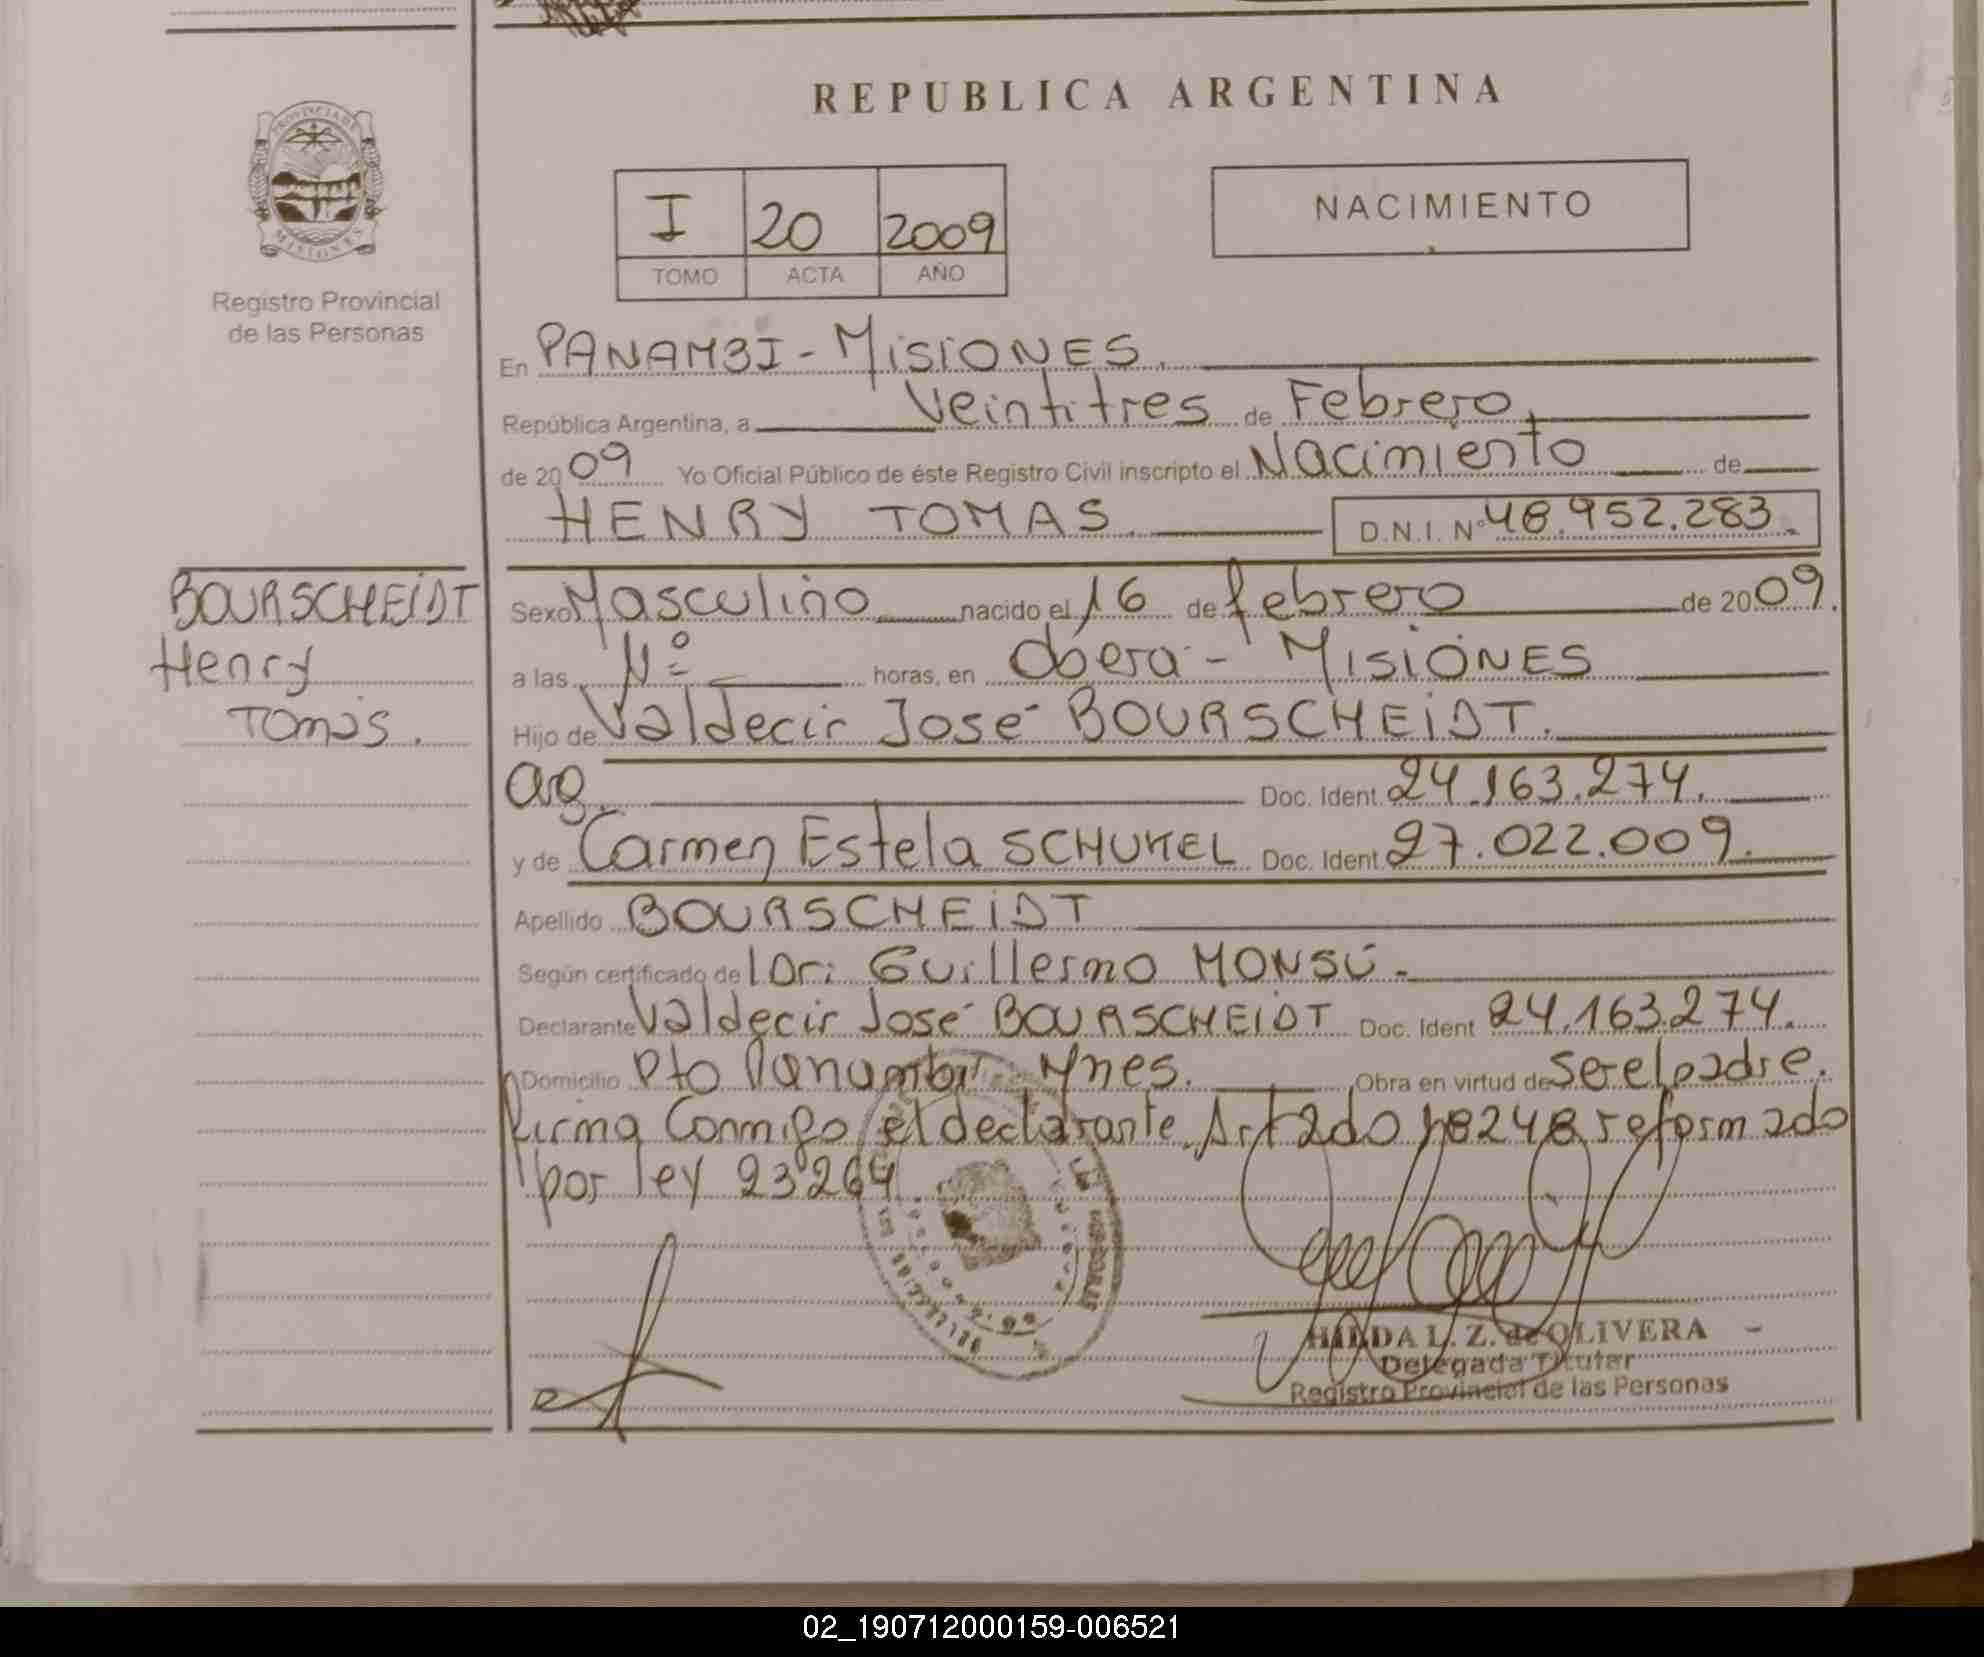 REPUBLICA ARGENTINA
PROVINCIA DE
MISIONES
Registro Provincial
de las Personas
I 20 2009
TOMO ACTA AÑO
NACIMIENTO
En PANAMBI - MISIONES.
República Argentina, a Veintitres de Febrero,
de 20 09 Yo Oficial Público de éste Registro Civil inscripto el Nacimiento de
HENRY TOMAS. D.N.I. Nº 48.952.283.
BOURSCHEIDT
Henry
Tomás.
Sexo Masculino nacido el 16 de febrero de 2009.
a las Nº horas, en Oberá - MISIÓNES
Hijo de Valdecir José BOURSCHEIDT.
arg. Doc. Ident. 24.163.274.
y de Carmen Estela SCHUKEL Doc. Ident. 27.022.009.
Apellido BOURSCHEIDT
Según certificado de Guillermo MONSÚ.
Declarante Valdecir José BOURSCHEIDT Doc. Ident 24.163.274.
Domicilio Pto Panambí Mnes. Obra en virtud de ser el padre.
firma Conmigo el declarante. Art 2do 18248 reformado
por ley 23264
HILDA L. Z. de OLIVERA
Delegada Titular
Registro Provincial de las Personas
02_190712000159-006521